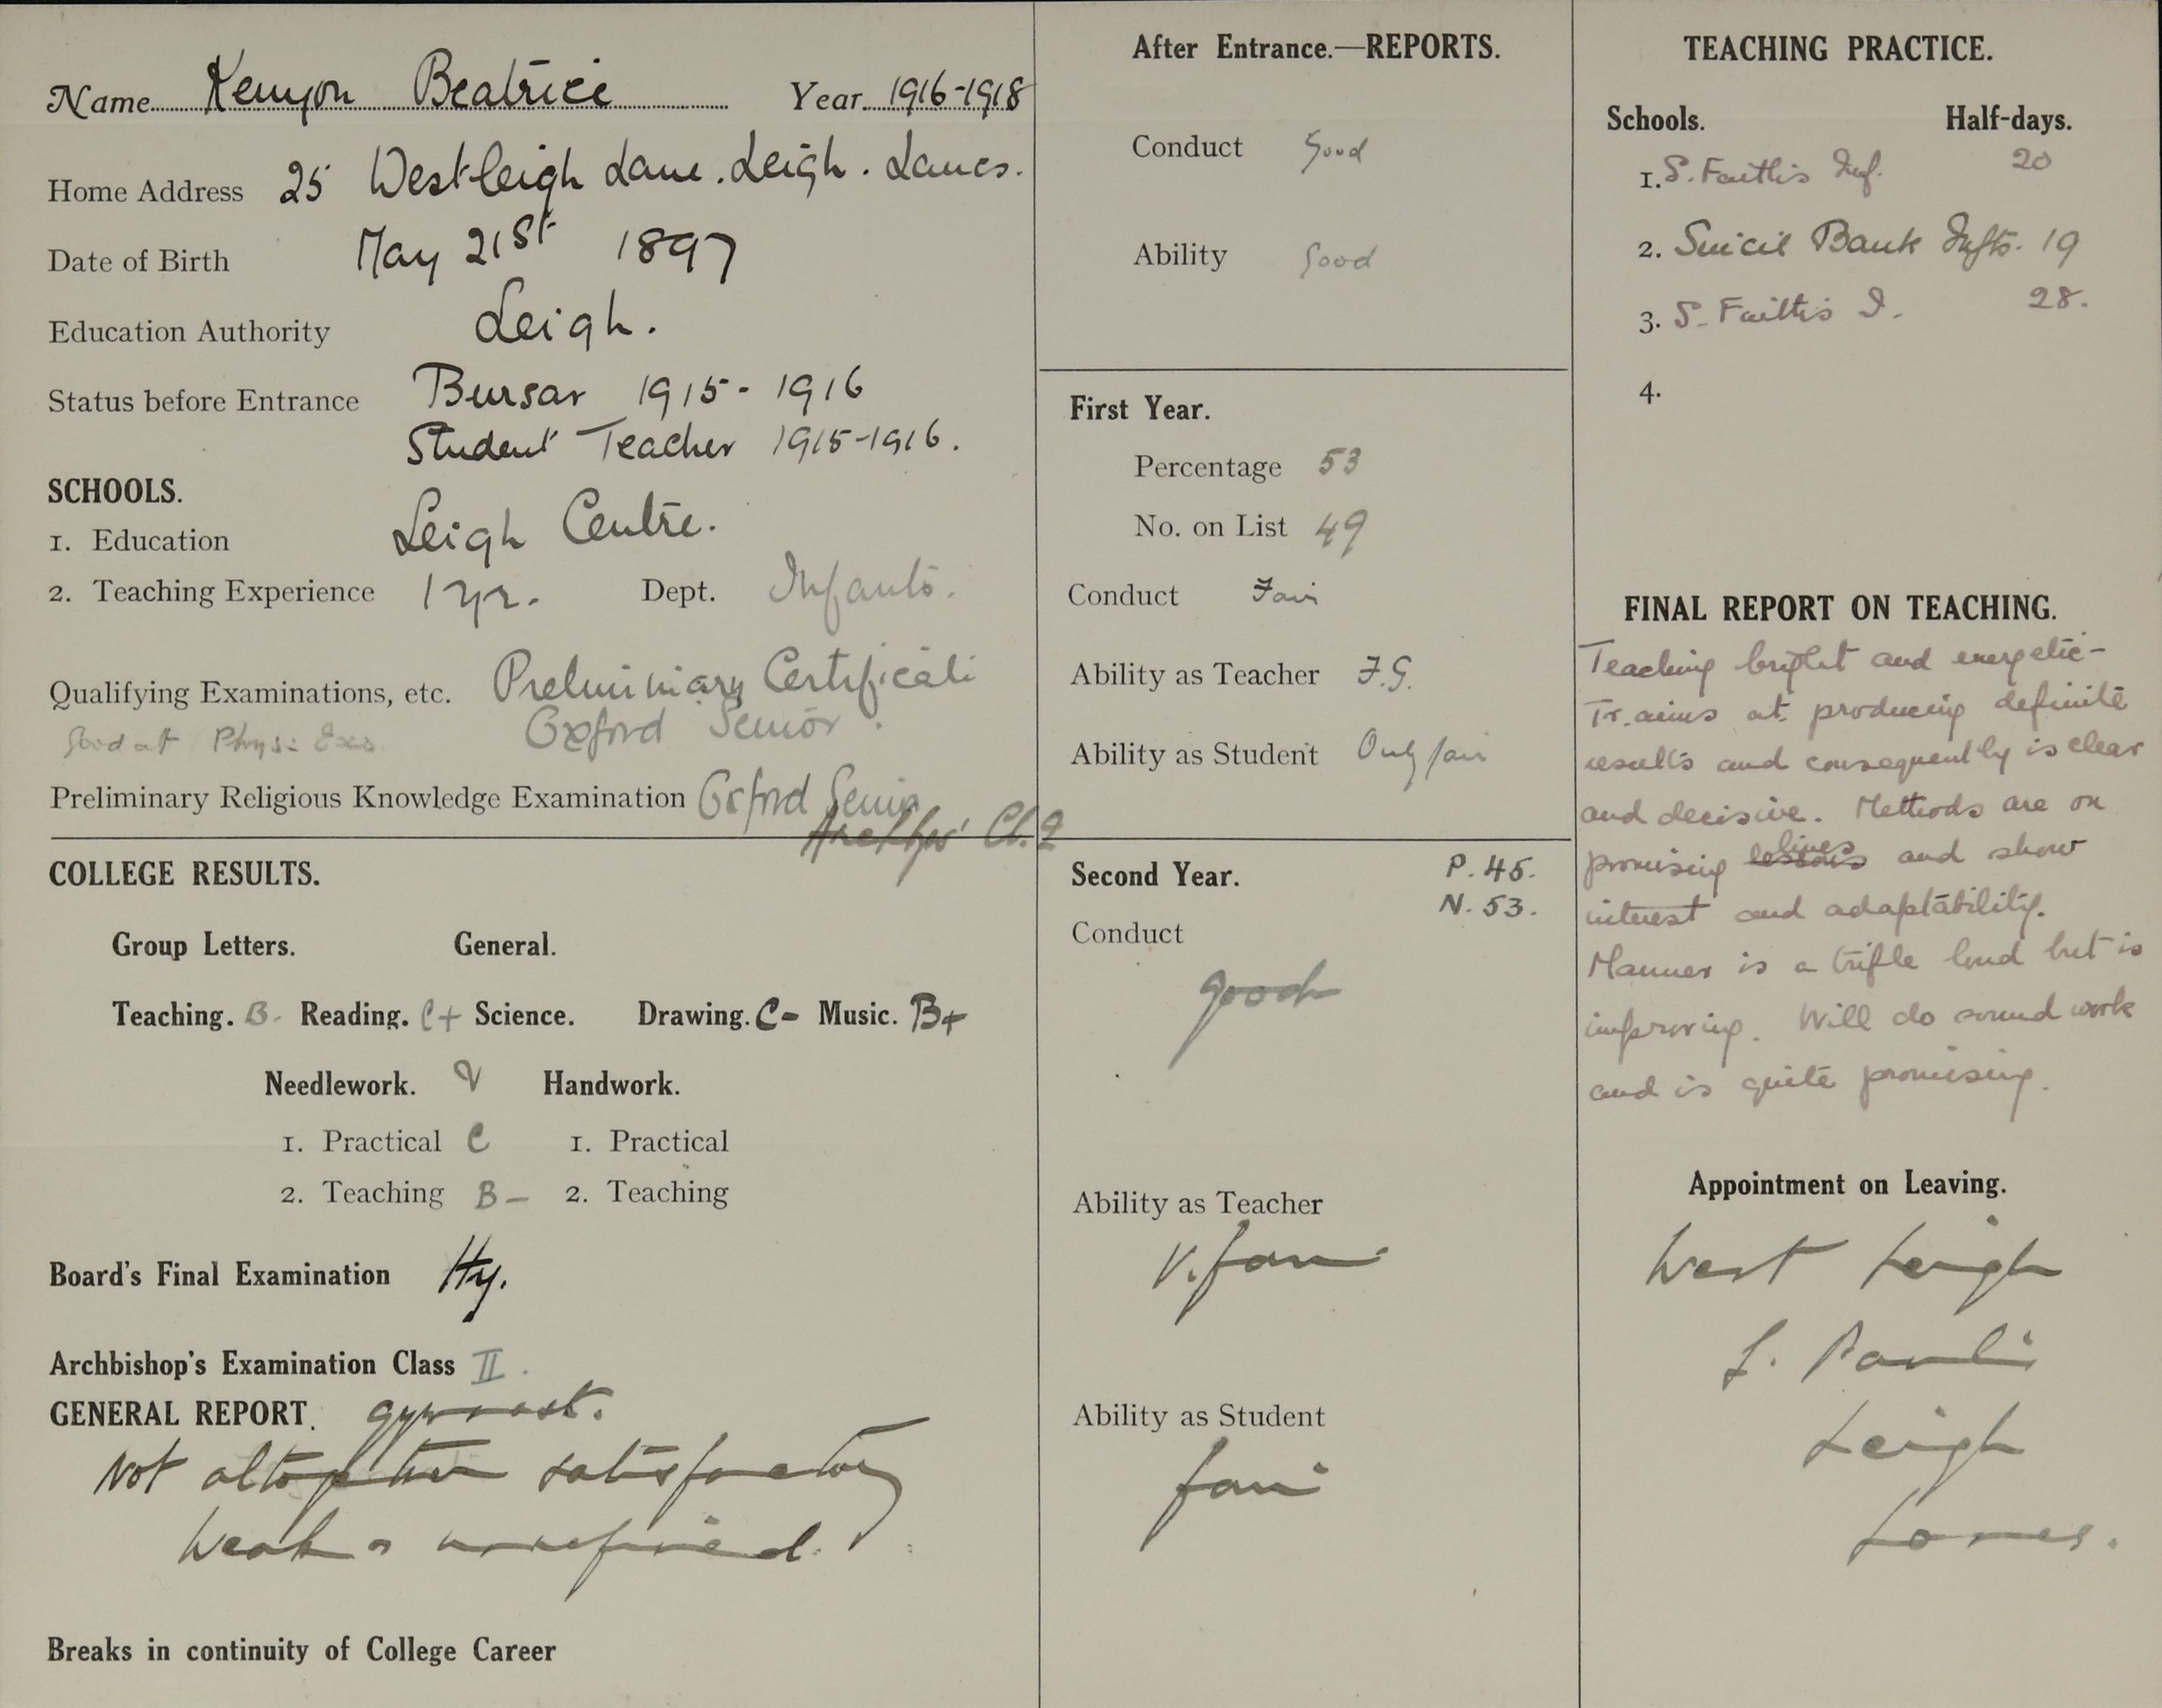 Name Kenyon Beatrice Year 1916-1918
Home Address 25 Westleigh Lane. Leigh. Lancs.
Date of Birth May 21st 1897
Education Authority Leigh.
Status before Entrance Bursar 1915-1916
Student Teacher 1915-1916.
SCHOOLS.
1. Education Leigh Centre.
2. Teaching Experience 1 yr. Dept. Infants.
Qualifying Examinations, etc. Preliminary Certificate
Good at Phys: Exs Oxford Senior.
Preliminary Religious Knowledge Examination Oxford Senior
Archbps' Cl. 2
COLLEGE RESULTS.
Group Letters. General.
Teaching. B- Reading. C+ Science. Drawing. C- Music. B+
Needlework. Handwork.
1. Practical C 1. Practical
2. Teaching B- 2. Teaching
Board's Final Examination Hy.
Archbishop's Examination Class II.
GENERAL REPORT. gymnast.
Not altogether satisfactory
Weak & unrefined.
Breaks in continuity of College Career
After Entrance.—REPORTS.
Conduct Good
Ability Good
First Year.
Percentage 53
No. on List 49
Conduct Fair
Ability as Teacher F.G.
Ability as Student Only fair
Second Year. P. 45.
N. 53.
Conduct
good
Ability as Teacher
V. fair
Ability as Student
fair
TEACHING PRACTICE.
Schools. Half-days.
1. S. Faith's Inf. 20
2. Bank Infts. 19
3. S. Faith's I. 28.
4.
FINAL REPORT ON TEACHING.
Teaching bright and energetic-
Tr. aims at producing definite
results and consequently is clear
and decisive. Methods are on
promising lessons lines and show
interest and adaptability.
Manner is a trifle loud but is
improving. Will do sound work
and is quite promising.
Appointment on Leaving.
West Leigh
S. Paul's
Leigh
Lancs.